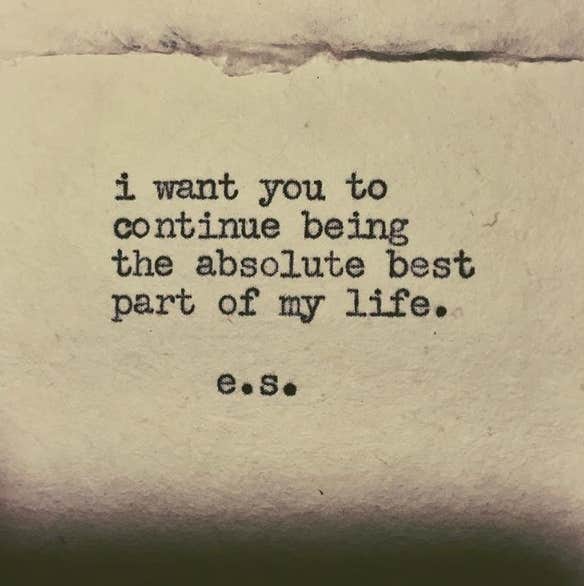 i want you to
continue being
the absolute best
part of my life.
e.s.